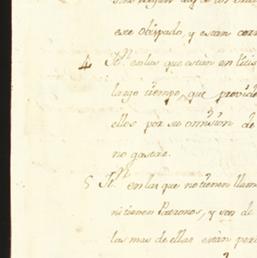 ese obispado, y estan
4 Yt. en las que estan en litis
largo tiempo, que
ellos por su omision de
no gastar.
5 Yt. en las que no tienen
ni tienen Patronos, y son de
las mas de ellas estan